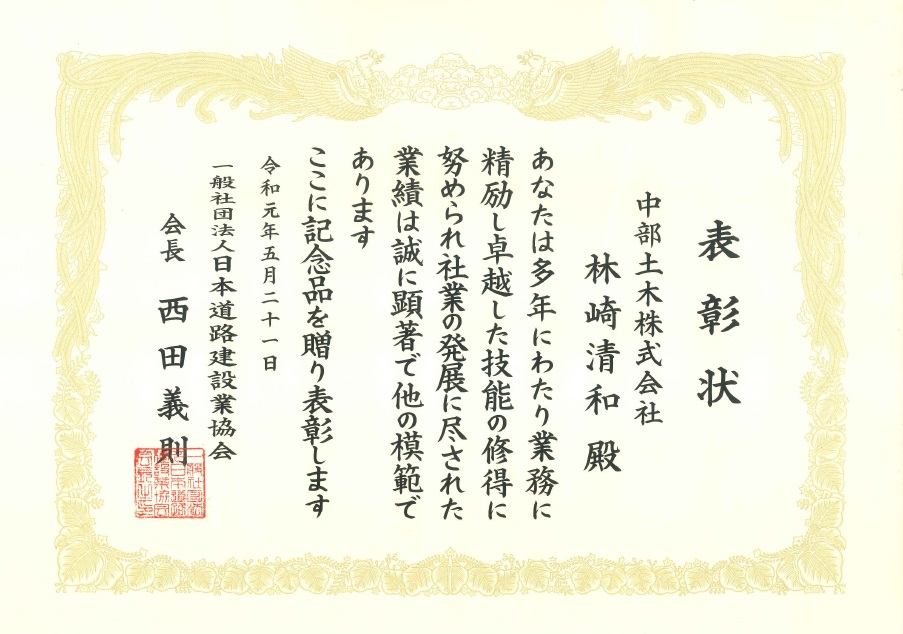 表彰状
中部土木株式会社
林崎清和殿
あなたは多年にわたり業務に
精励し卓越した技能の修得に
努められ社業の発展に尽された
業績は誠に顕著で他の模範で
あります
ここに記念品を贈り表彰します
令和元年五月二十一日
一般社団法人日本道路建設業協会
会長 西田義則